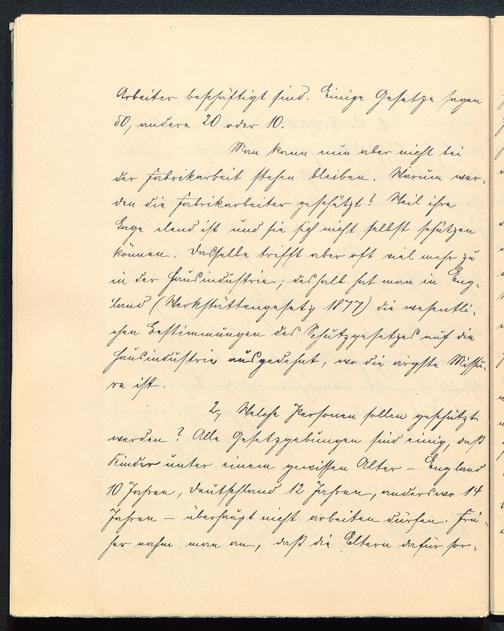 Arbeiter beschäftigt sind. Einige Gesetze sagen
50, andere 20 oder 10.
Man kann nun aber nicht bei
der Fabrikarbeit stehen bleiben. Warum wer-
den die Fabrikarbeiter geschützt? Weil ihre
Lage elend ist und sie sich nicht selbst schützen
können. Dasselbe trifft aber oft viel mehr zu
in der Hausindustrie; deshalb hat man in Eng-
land (Werkstättengesetz 1877) die wesentli-
chen Bestimmungen des Schutzgesetzes auf die
Hausindustrie ausgedehnt, wo die ärgste Misè-
re ist.
2, Welche Personen sollen geschützt
werden? Alle Gesetzgebungen sind einig, daß
Kinder unter einem gewissen Alter – England
10 Jahren, Deutschland 12 Jahren, anderswo 14
Jahren – überhaupt nicht arbeiten dürfen. Frü-
her nahm man an, daß die Eltern dafür sor-